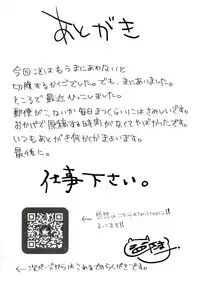 あとがき
今回ことはもうまにあわないと
切腹するかくごでした。でも、まにあいました。
ところで最近ひっこしました。
郵便がこないか毎日まつくらいにはさみしいです。
おかげで原稿する時間がなくてやばかったです。
いつもあとがき何かがまよいます。
最後に。
仕事下さい。
← 感想はこちらのtwitterに!!
まってます!!
← 次ページからはこれまでのらくがきです